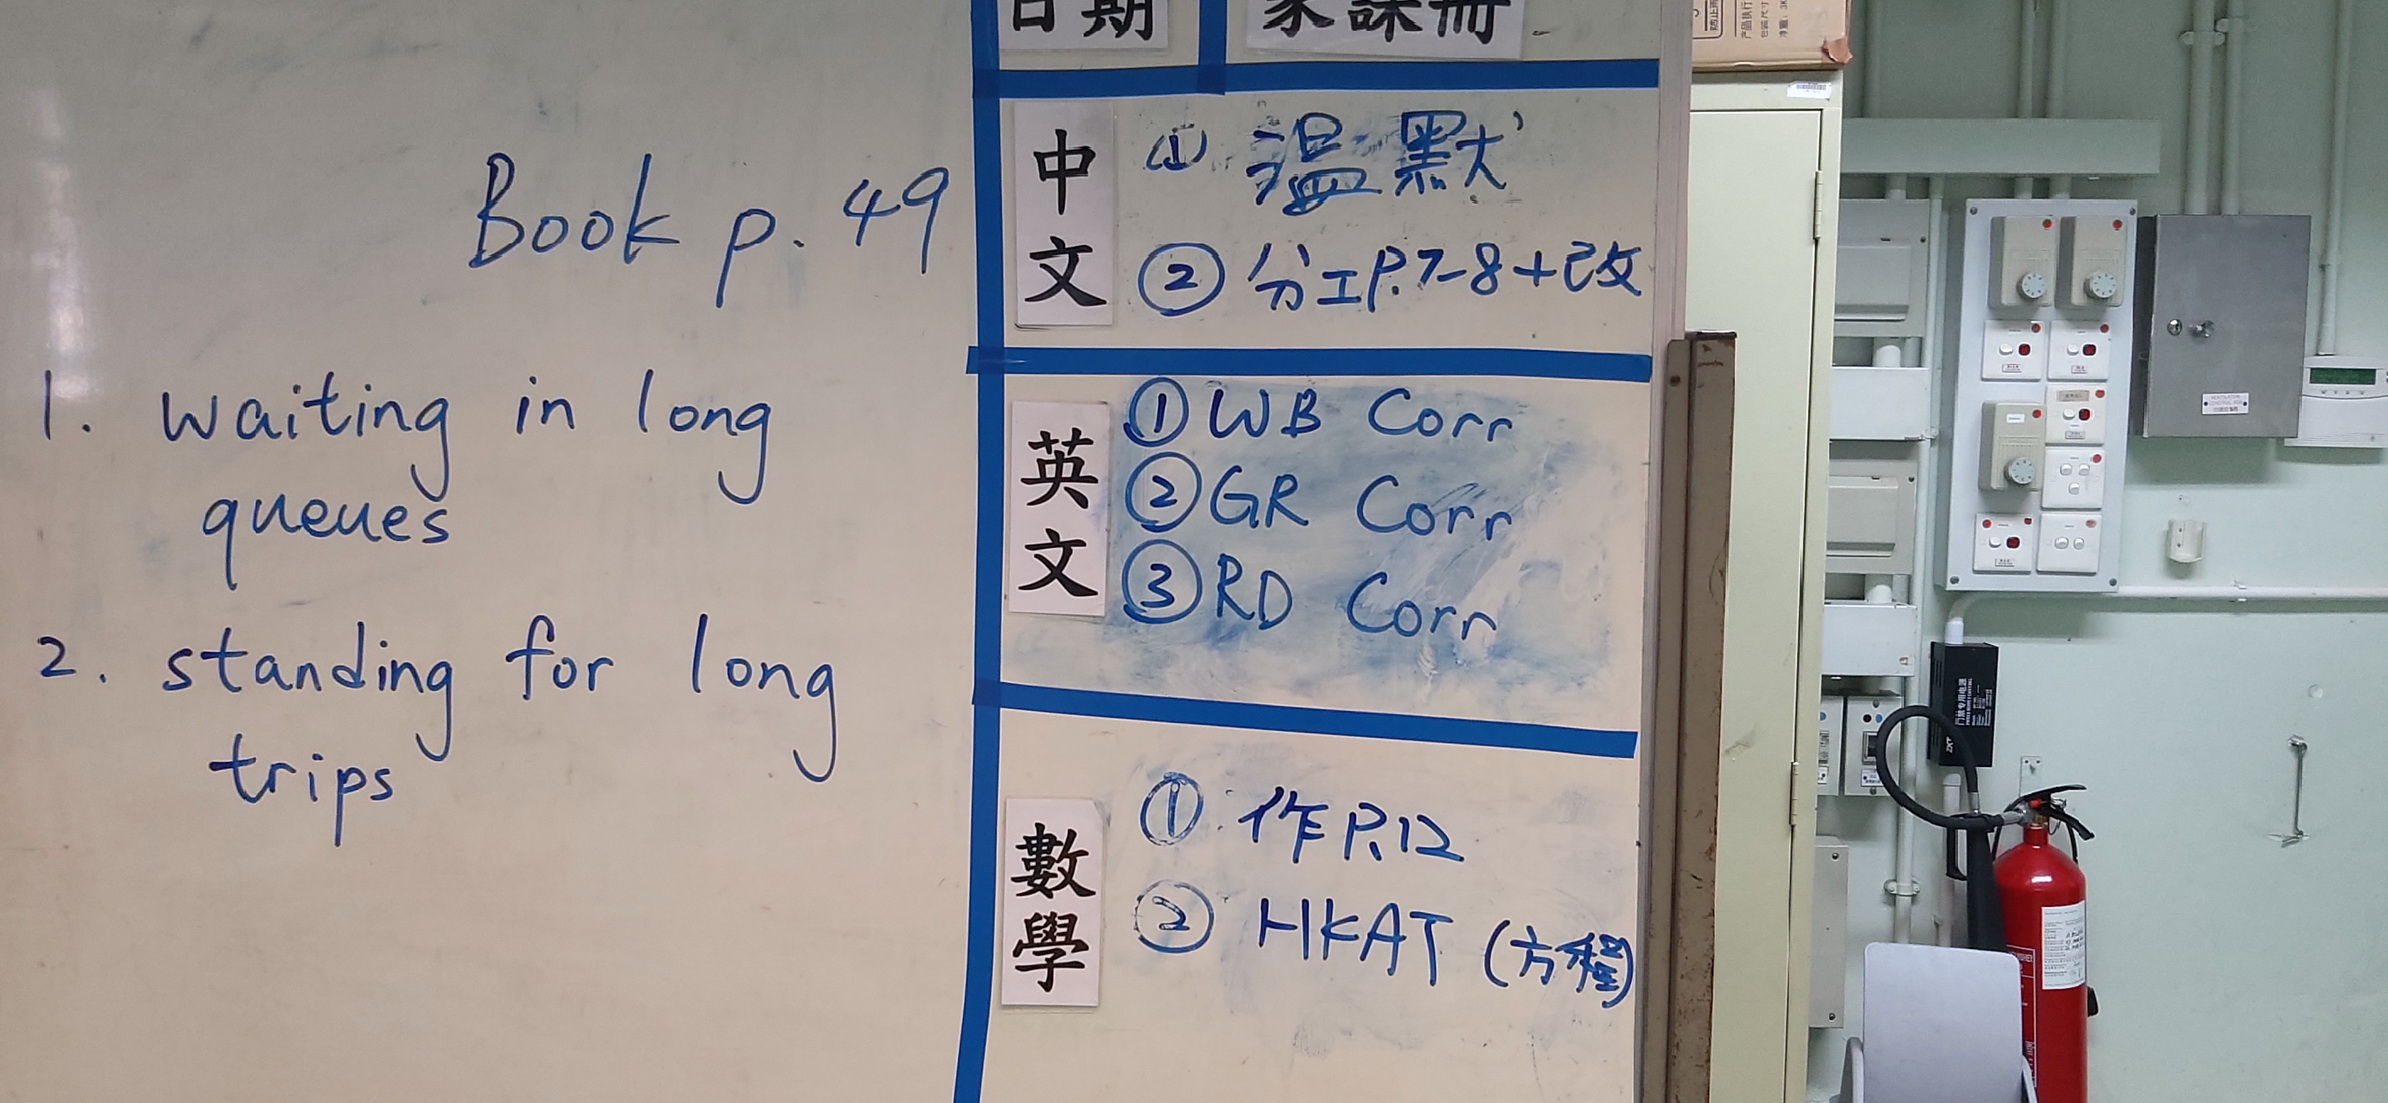 Book p. 49
1. waiting in long
queues
2. standing for long
trips
日期
家課冊
中文
① 溫默
② 分工P.7-8+改
英文
① WB Corr
② GR Corr
③ RD Corr
數學
① 作P.12
② HKAT (方程)
门禁专用电源